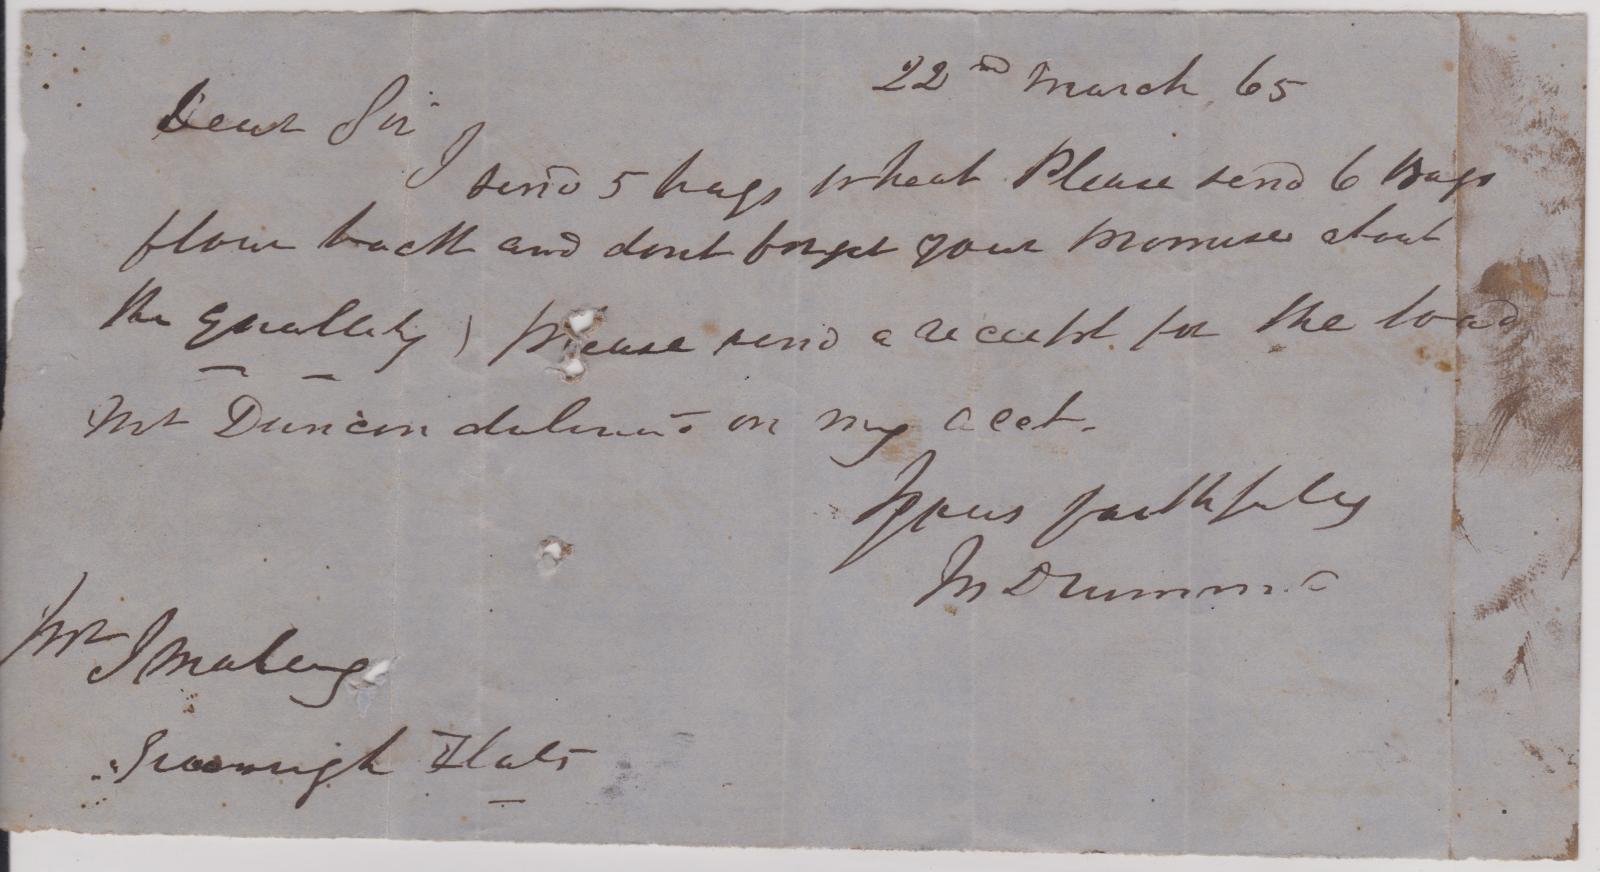 22nd March 65
Dear Sir
I send 5 bags wheat Please send 6 bags
flour back and dont forget your promise about
the quallety) please send a receipt for the load
Mr Duncan delivered on my acct.
Yours faithfuley
Drummd
Mr J Maley
Greenough Flats